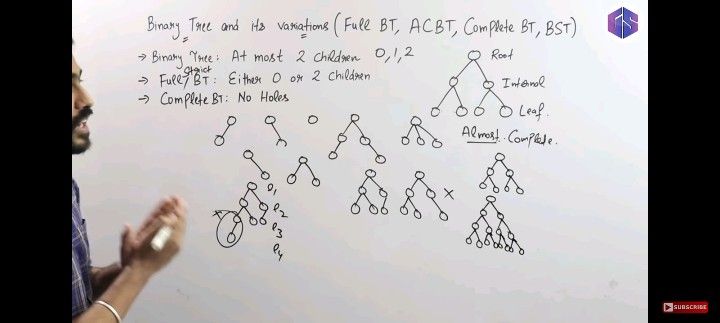 Binary Tree and its variations (Full BT, ACBT, Complete BT, BST)
→ Binary Tree: At most 2 children 0,1,2
→ Full/Strict BT: Either 0 or 2 Children
→ Complete BT: No Holes
Root
Internal
Leaf.
Almost Complete
l1
l2
l3
l4
x
SUBSCRIBE